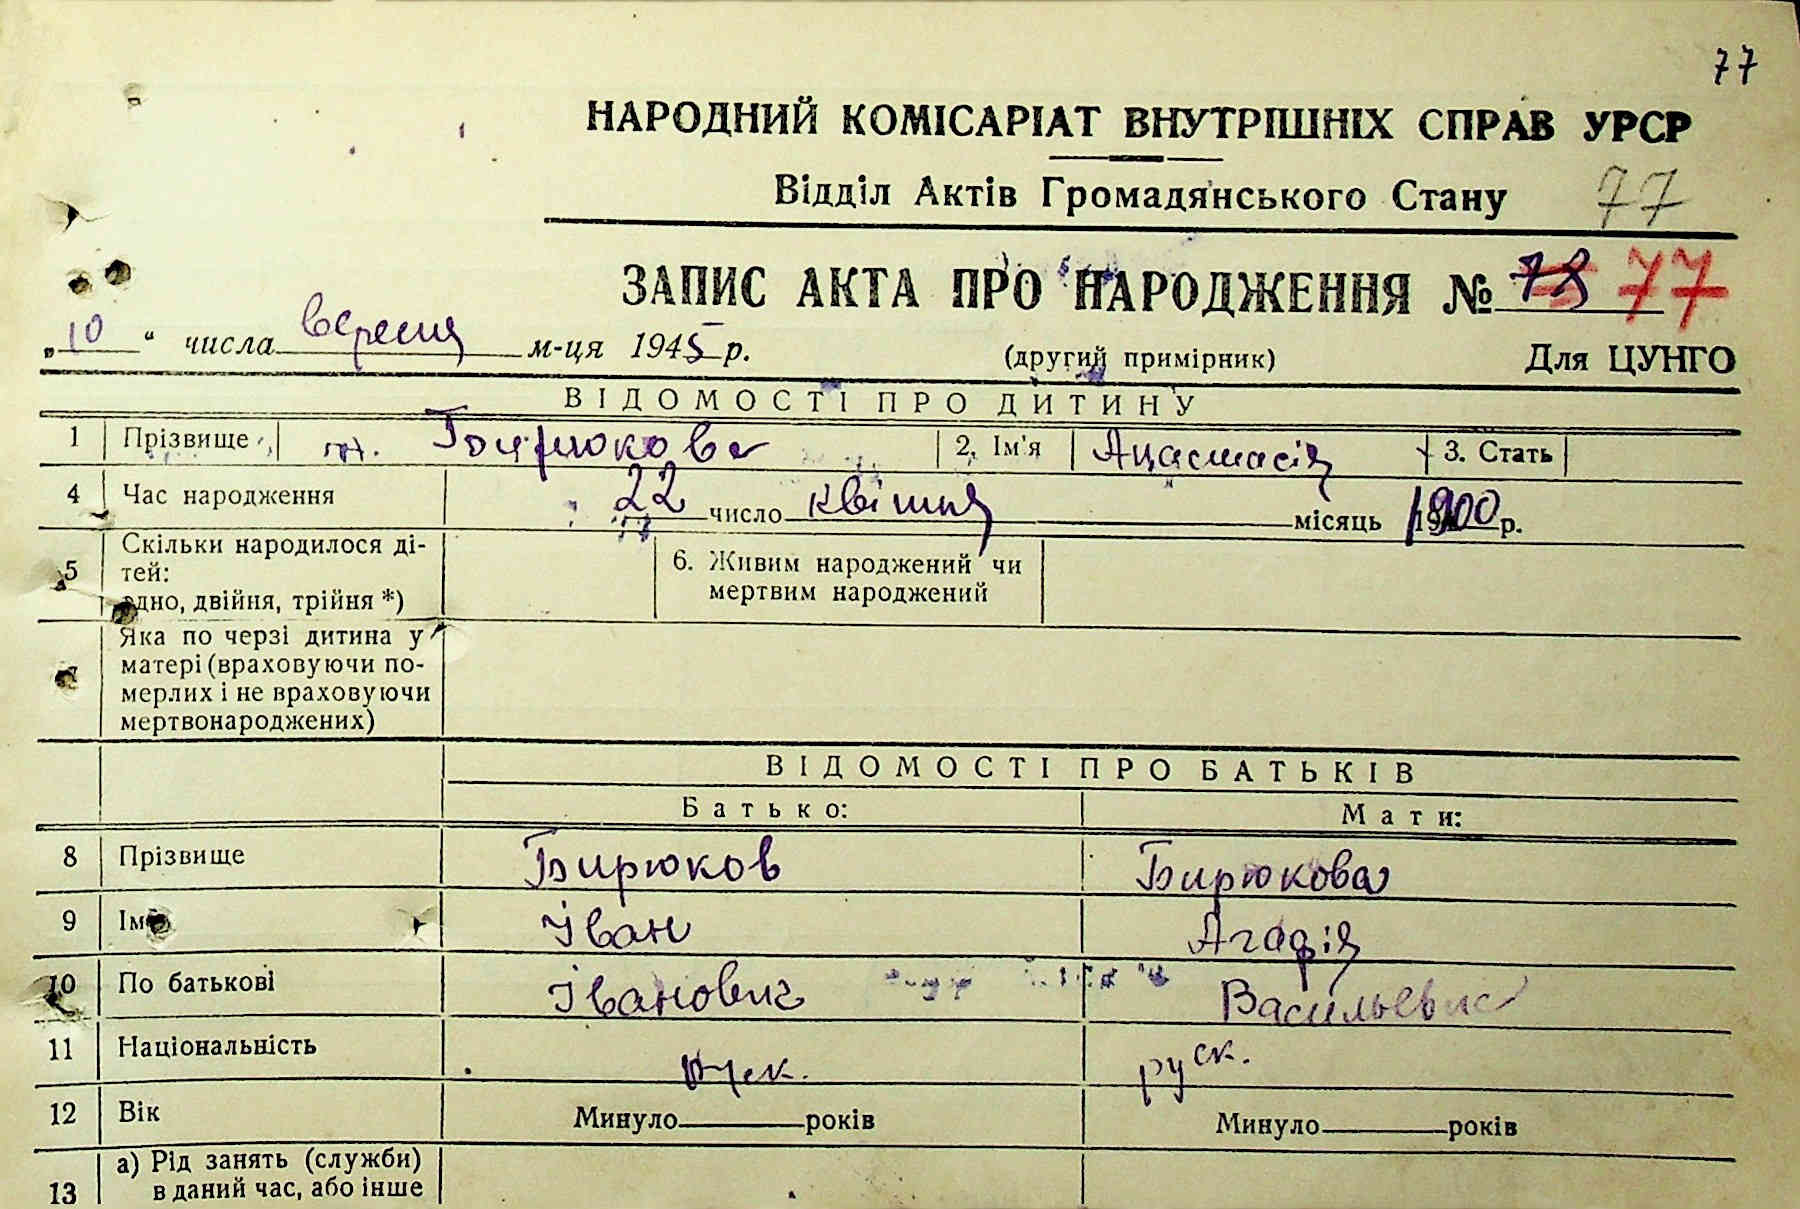 77
НАРОДНИЙ КОМІСАРІАТ ВНУТРІШНІХ СПРАВ УРСР
Відділ Актів Громадянського Стану 77
ЗАПИС АКТА ПРО НАРОДЖЕННЯ № 78 77
„10“ числа вересня м-ця 1945 р. (другий примірник) Для ЦУНГО
ВІДОМОСТІ ПРО ДИТИНУ
1 Прізвище Бирюкова 2. Ім'я Анастасія 3. Стать
4 Час народження 22 число квітня місяць 1900 р.
5 Скільки народилося ді-
тей:
одно, двійня, трійня *)
6. Живим народжений чи
мертвим народжений
7 Яка по черзі дитина у
матері (враховуючи по-
мерлих і не враховуючи
мертвонароджених)
ВІДОМОСТІ ПРО БАТЬКІВ
Батько: Мати:
8 Прізвище Бирюков Бирюкова
9 Ім' Іван Агафія
10 По батькові Іванович Васильевна
11 Національність руск. руск.
12 Вік Минуло років Минуло років
13 а) Рід занять (служби)
в даний час, або інше